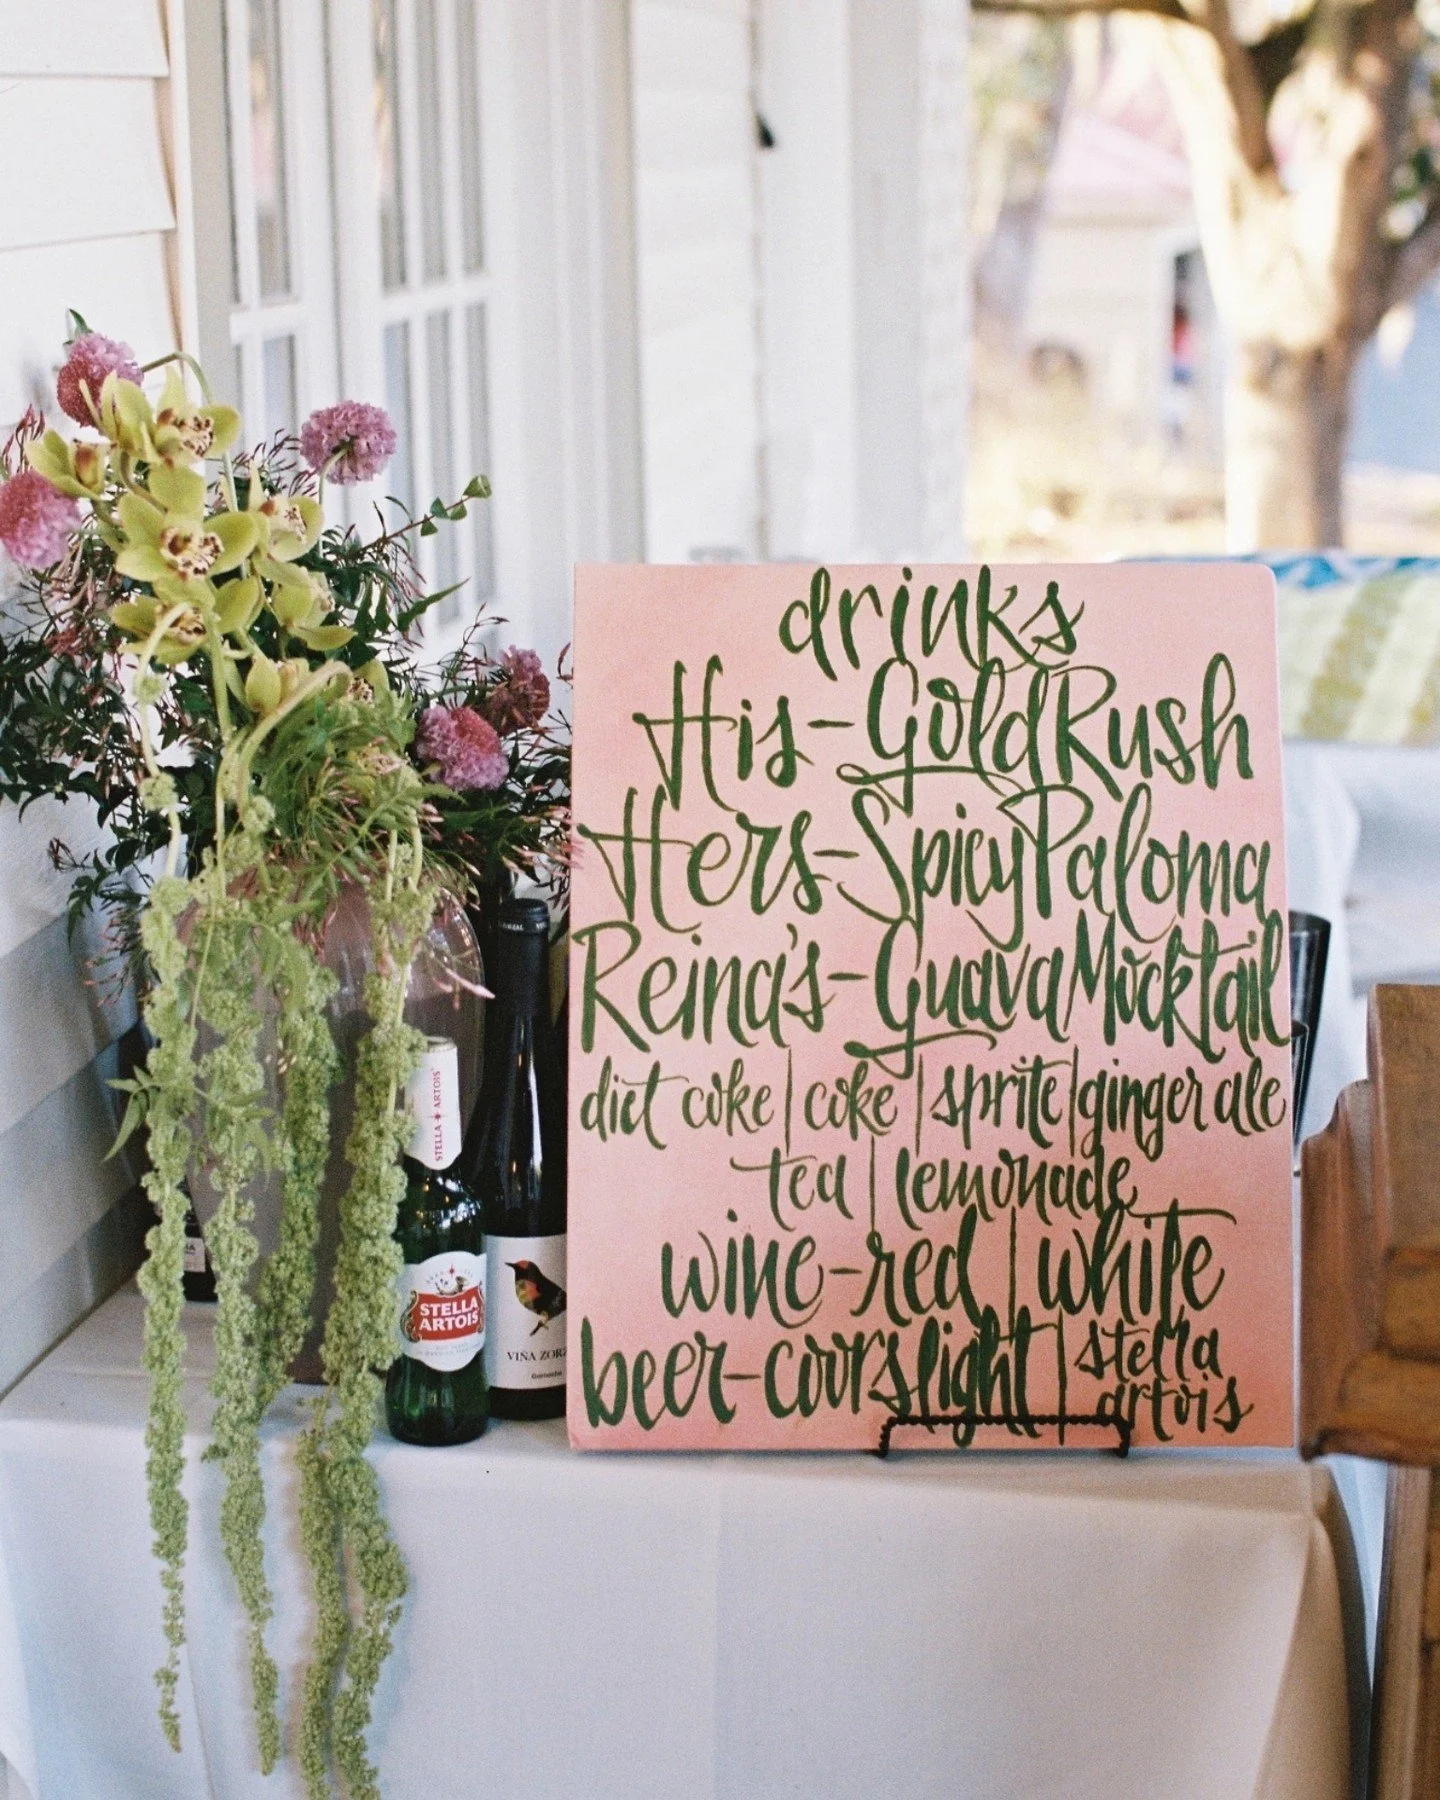 drinks
His-Gold Rush
Hers-Spicy Paloma
Reina's-Guava Mocktail
diet coke | coke | sprite | ginger ale
tea | lemonade
wine-red | white
beer-coors light | stella
artois
STELLA ARTOIS
STELLA
ARTOIS
VIÑA ZORZ
Garnacha